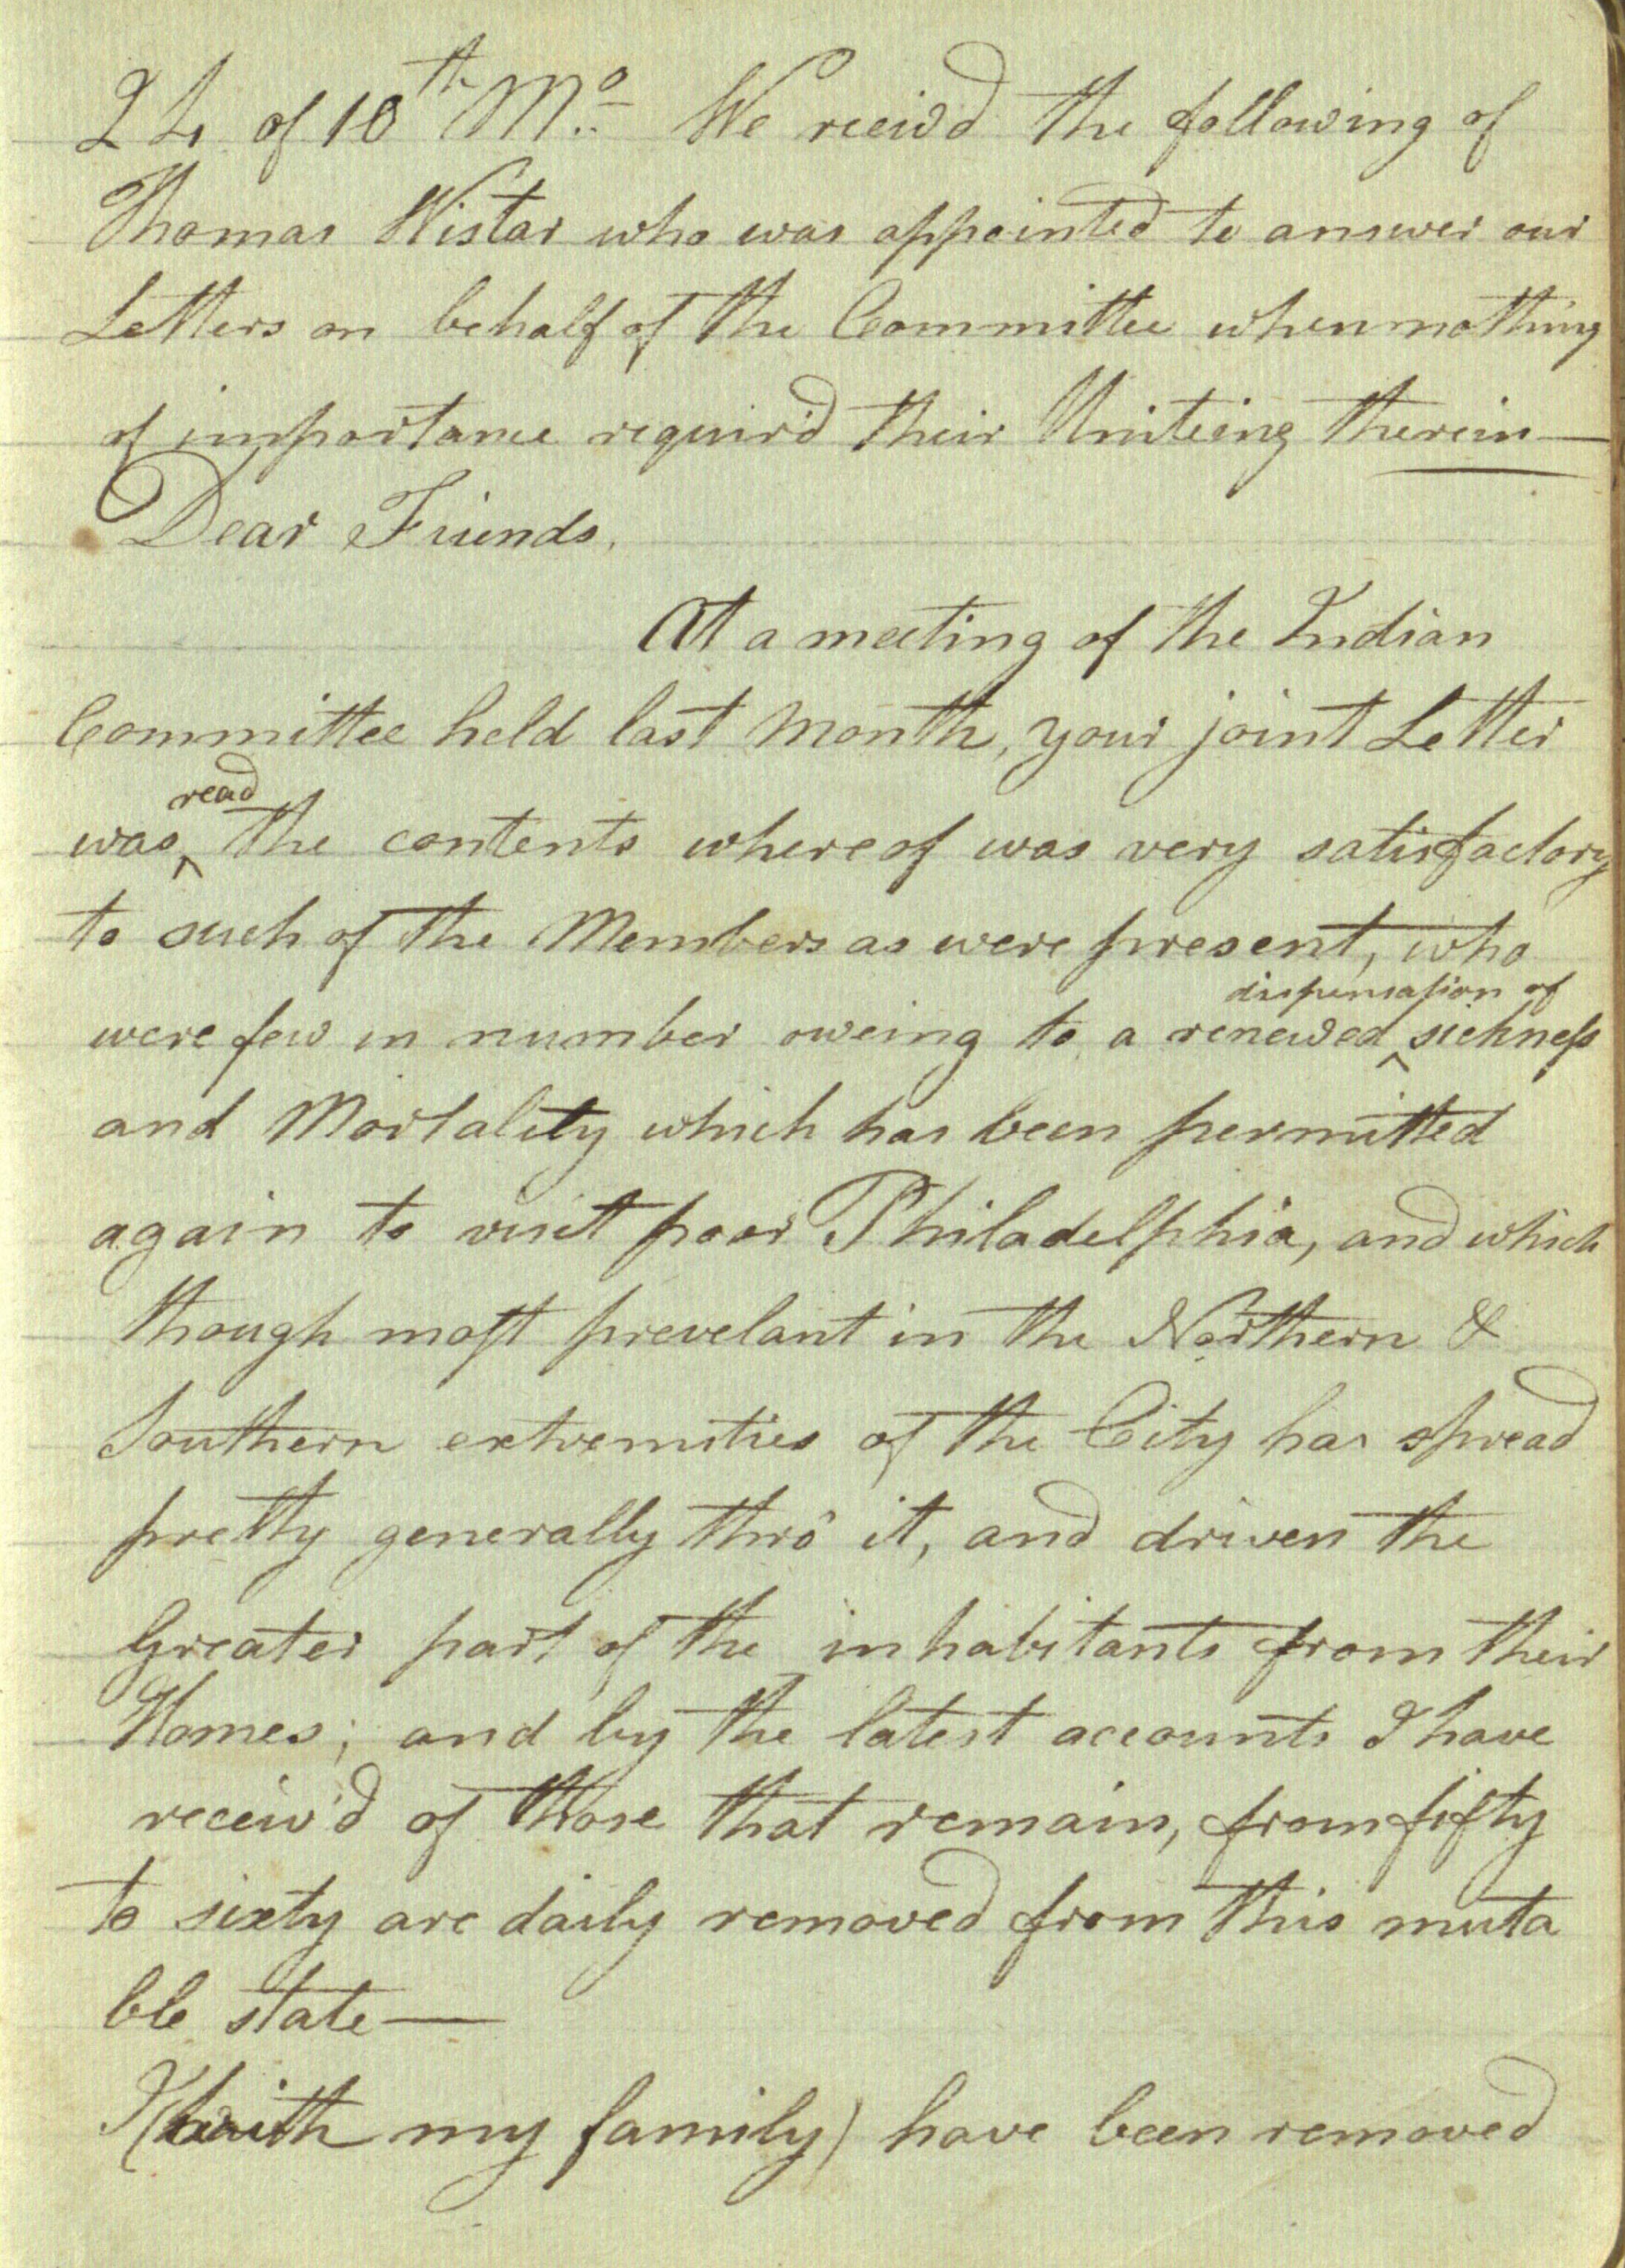 24 of 10th Mo. We receiv'd the following of
Thomas Wistar who was appointed to answer our
Letters on behalf of the Committee when nothing
of importance requir'd their Uniteing therein—
Dear Friends,
At a meeting of the Indian
Committee held last Month, your joint Letter
was ^read the contents whereof was very satisfactory
to such of the Members as were present, who
were few in number oweing to a renewed ^dispensation of sickness
and Mortality which has been permitted
again to visit poor Philadelphia, and which
though most prevelant in the Northern &
Southern extremities of the City has spread
pretty generally thro' it, and driven the
Greater part of the inhabitants from their
Homes; and by the latest accounts I have
receiv'd of those that remain, from fifty
to sixty are daily removed from this muta
ble state—
I (with my family) have been removed